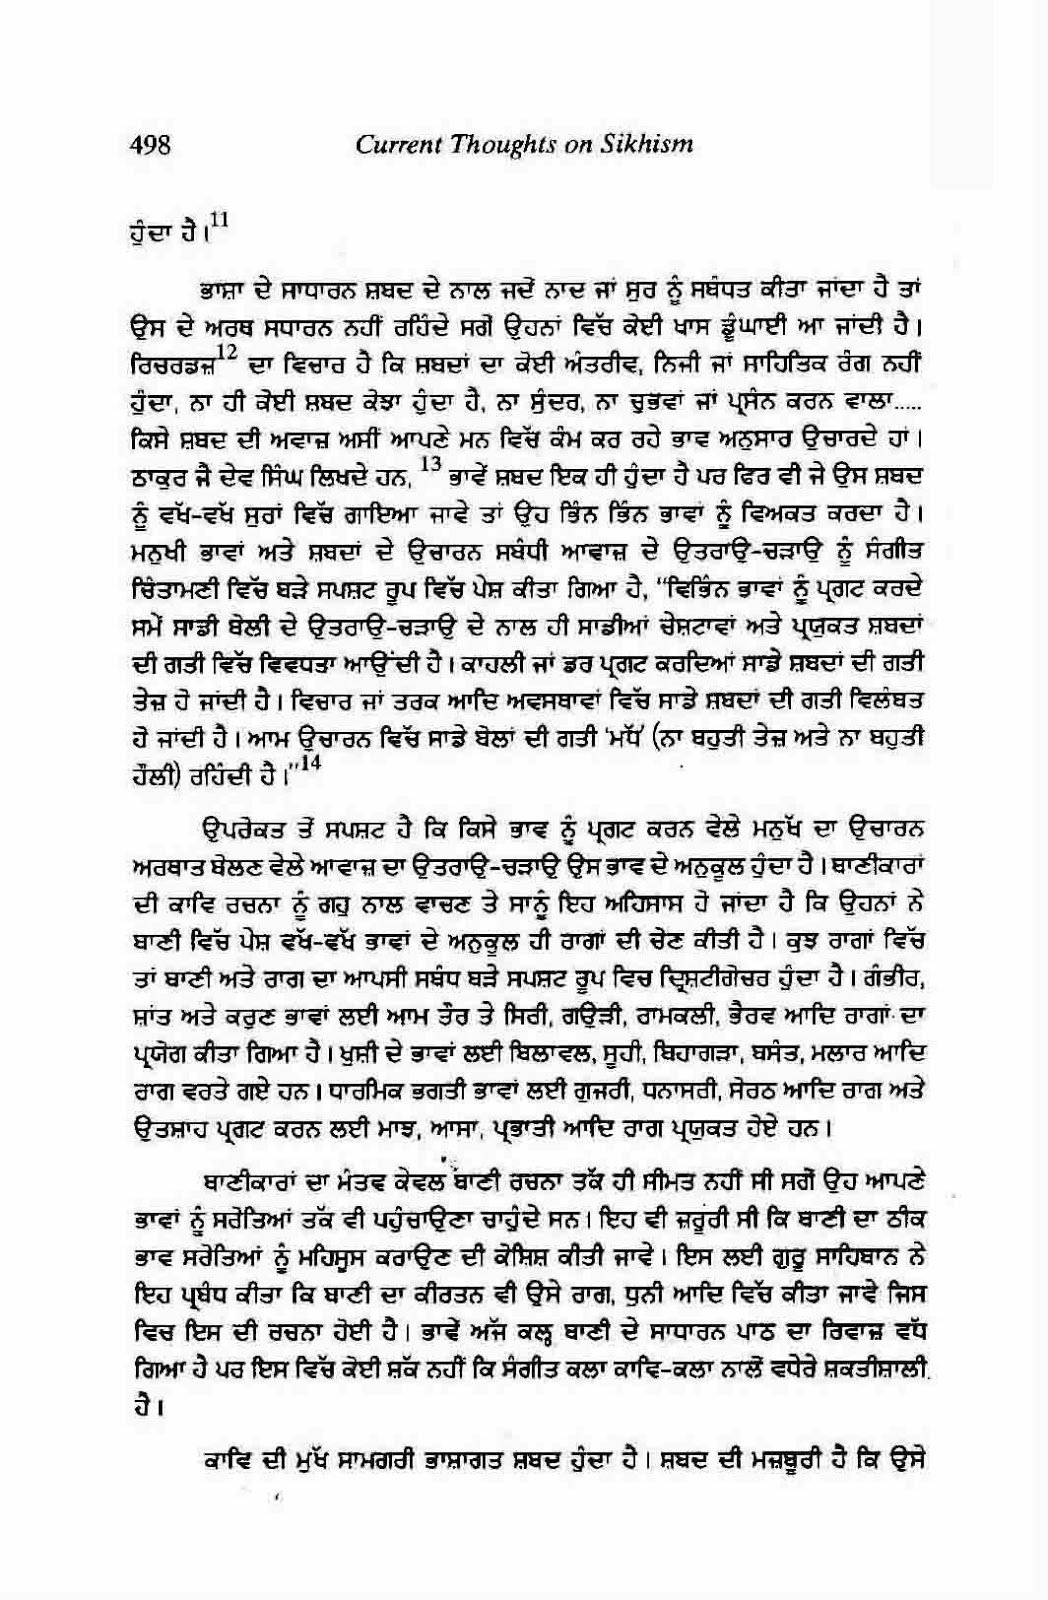 498 Current Thoughts on Sikhism
ਹੁੰਦਾ ਹੈ।11
ਭਾਸ਼ਾ ਦੇ ਸਾਧਾਰਨ ਸ਼ਬਦ ਦੇ ਨਾਲ ਜਦੋਂ ਨਾਦ ਜਾਂ ਸੁਰ ਨੂੰ ਸਬੰਧਤ ਕੀਤਾ ਜਾਂਦਾ ਹੈ ਤਾਂ
ਉਸ ਦੇ ਅਰਥ ਸਧਾਰਨ ਨਹੀਂ ਰਹਿੰਦੇ ਸਗੋਂ ਉਹਨਾਂ ਵਿੱਚ ਕੋਈ ਖਾਸ ਡੂੰਘਾਈ ਆ ਜਾਂਦੀ ਹੈ।
ਰਿਚਰਡਜ਼12 ਦਾ ਵਿਚਾਰ ਹੈ ਕਿ ਸ਼ਬਦਾਂ ਦਾ ਕੋਈ ਅੰਤਰੀਵ, ਨਿਜੀ ਜਾਂ ਸਾਹਿਤਿਕ ਰੰਗ ਨਹੀਂ
ਹੁੰਦਾ, ਨਾ ਹੀ ਕੋਈ ਸ਼ਬਦ ਕੋਝਾ ਹੁੰਦਾ ਹੈ, ਨਾ ਸੁੰਦਰ, ਨਾ ਚੁਭਵਾਂ ਜਾਂ ਪ੍ਰਸੰਨ ਕਰਨ ਵਾਲਾ.....
ਕਿਸੇ ਸ਼ਬਦ ਦੀ ਅਵਾਜ਼ ਅਸੀਂ ਆਪਣੇ ਮਨ ਵਿੱਚ ਕੰਮ ਕਰ ਰਹੇ ਭਾਵ ਅਨੁਸਾਰ ਉਚਾਰਦੇ ਹਾਂ।
ਠਾਕੁਰ ਜੈ ਦੇਵ ਸਿੰਘ ਲਿਖਦੇ ਹਨ, 13 ਭਾਵੇਂ ਸ਼ਬਦ ਇਕ ਹੀ ਹੁੰਦਾ ਹੈ ਪਰ ਫਿਰ ਵੀ ਜੇ ਉਸ ਸ਼ਬਦ
ਨੂੰ ਵੱਖ-ਵੱਖ ਸੁਰਾਂ ਵਿੱਚ ਗਾਇਆ ਜਾਵੇ ਤਾਂ ਉਹ ਭਿੰਨ ਭਿੰਨ ਭਾਵਾਂ ਨੂੰ ਵਿਅਕਤ ਕਰਦਾ ਹੈ।
ਮਨੁਖੀ ਭਾਵਾਂ ਅਤੇ ਸ਼ਬਦਾਂ ਦੇ ਉਚਾਰਨ ਸਬੰਧੀ ਆਵਾਜ਼ ਦੇ ਉਤਰਾਉ-ਚੜਾਉ ਨੂੰ ਸੰਗੀਤ
ਚਿੰਤਾਮਣੀ ਵਿੱਚ ਬੜੇ ਸਪਸ਼ਟ ਰੂਪ ਵਿੱਚ ਪੇਸ਼ ਕੀਤਾ ਗਿਆ ਹੈ, "ਵਿਭਿੰਨ ਭਾਵਾਂ ਨੂੰ ਪ੍ਰਗਟ ਕਰਦੇ
ਸਮੇਂ ਸਾਡੀ ਬੋਲੀ ਦੇ ਉਤਰਾਉ-ਚੜਾਉ ਦੇ ਨਾਲ ਹੀ ਸਾਡੀਆਂ ਚੇਸ਼ਟਾਵਾਂ ਅਤੇ ਪ੍ਰਯੁਕਤ ਸ਼ਬਦਾਂ
ਦੀ ਗਤੀ ਵਿੱਚ ਵਿਵਧਤਾ ਆਉਂਦੀ ਹੈ। ਕਾਹਲੀ ਜਾਂ ਡਰ ਪ੍ਰਗਟ ਕਰਦਿਆਂ ਸਾਡੇ ਸ਼ਬਦਾਂ ਦੀ ਗਤੀ
ਤੇਜ਼ ਹੋ ਜਾਂਦੀ ਹੈ। ਵਿਚਾਰ ਜਾਂ ਤਰਕ ਆਦਿ ਅਵਸਥਾਵਾਂ ਵਿੱਚ ਸਾਡੇ ਸ਼ਬਦਾਂ ਦੀ ਗਤੀ ਵਿਲੰਬਤ
ਹੋ ਜਾਂਦੀ ਹੈ। ਆਮ ਉਚਾਰਨ ਵਿੱਚ ਸਾਡੇ ਬੋਲਾਂ ਦੀ ਗਤੀ 'ਮਧੱ' (ਨਾ ਬਹੁਤੀ ਤੇਜ਼ ਅਤੇ ਨਾ ਬਹੁਤੀ
ਹੌਲੀ) ਰਹਿੰਦੀ ਹੈ।"14
ਉਪਰੋਕਤ ਤੋਂ ਸਪਸ਼ਟ ਹੈ ਕਿ ਕਿਸੇ ਭਾਵ ਨੂੰ ਪ੍ਰਗਟ ਕਰਨ ਵੇਲੇ ਮਨੁੱਖ ਦਾ ਉਚਾਰਨ
ਅਰਥਾਤ ਬੋਲਣ ਵੇਲੇ ਆਵਾਜ਼ ਦਾ ਉਤਰਾਉ-ਚੜਾਉ ਉਸ ਭਾਵ ਦੇ ਅਨੁਕੂਲ ਹੁੰਦਾ ਹੈ। ਬਾਣੀਕਾਰਾਂ
ਦੀ ਕਾਵਿ ਰਚਨਾ ਨੂੰ ਗਹੁ ਨਾਲ ਵਾਚਣ ਤੇ ਸਾਨੂੰ ਇਹ ਅਹਿਸਾਸ ਹੋ ਜਾਂਦਾ ਹੈ ਕਿ ਉਹਨਾਂ ਨੇ
ਬਾਣੀ ਵਿੱਚ ਪੇਸ਼ ਵੱਖ-ਵੱਖ ਭਾਵਾਂ ਦੇ ਅਨੁਕੂਲ ਹੀ ਰਾਗਾਂ ਦੀ ਚੋਣ ਕੀਤੀ ਹੈ। ਕੁਝ ਰਾਗਾਂ ਵਿੱਚ
ਤਾਂ ਬਾਣੀ ਅਤੇ ਰਾਗ ਦਾ ਆਪਸੀ ਸਬੰਧ ਬੜੇ ਸਪਸ਼ਟ ਰੂਪ ਵਿਚ ਦ੍ਰਿਸ਼ਟੀਗੋਚਰ ਹੁੰਦਾ ਹੈ। ਗੰਭੀਰ,
ਸ਼ਾਂਤ ਅਤੇ ਕਰੁਣ ਭਾਵਾਂ ਲਈ ਆਮ ਤੌਰ ਤੇ ਸਿਰੀ, ਗਉੜੀ, ਰਾਮਕਲੀ, ਭੈਰਵ ਆਦਿ ਰਾਗਾਂ ਦਾ
ਪ੍ਰਯੋਗ ਕੀਤਾ ਗਿਆ ਹੈ। ਖੁਸ਼ੀ ਦੇ ਭਾਵਾਂ ਲਈ ਬਿਲਾਵਲ, ਸੂਹੀ, ਬਿਹਾਗੜਾ, ਬਸੰਤ, ਮਲਾਰ ਆਦਿ
ਰਾਗ ਵਰਤੇ ਗਏ ਹਨ। ਧਾਰਮਿਕ ਭਗਤੀ ਭਾਵਾਂ ਲਈ ਗੁਜਰੀ, ਧਨਾਸਰੀ, ਸੋਰਠ ਆਦਿ ਰਾਗ ਅਤੇ
ਉਤਸ਼ਾਹ ਪ੍ਰਗਟ ਕਰਨ ਲਈ ਮਾਝ, ਆਸਾ, ਪ੍ਰਭਾਤੀ ਆਦਿ ਰਾਗ ਪ੍ਰਯੁਕਤ ਹੋਏ ਹਨ।
ਬਾਣੀਕਾਰਾਂ ਦਾ ਮੰਤਵ ਕੇਵਲ ਬਾਣੀ ਰਚਨਾ ਤੱਕ ਹੀ ਸੀਮਤ ਨਹੀਂ ਸੀ ਸਗੋਂ ਉਹ ਆਪਣੇ
ਭਾਵਾਂ ਨੂੰ ਸਰੋਤਿਆਂ ਤੱਕ ਵੀ ਪਹੁੰਚਾਉਣਾ ਚਾਹੁੰਦੇ ਸਨ। ਇਹ ਵੀ ਜ਼ਰੂਰੀ ਸੀ ਕਿ ਬਾਣੀ ਦਾ ਠੀਕ
ਭਾਵ ਸਰੋਤਿਆਂ ਨੂੰ ਮਹਿਸੂਸ ਕਰਾਉਣ ਦੀ ਕੋਸ਼ਿਸ਼ ਕੀਤੀ ਜਾਵੇ। ਇਸ ਲਈ ਗੁਰੂ ਸਾਹਿਬਾਨ ਨੇ
ਇਹ ਪ੍ਰਬੰਧ ਕੀਤਾ ਕਿ ਬਾਣੀ ਦਾ ਕੀਰਤਨ ਵੀ ਉਸੇ ਰਾਗ, ਧੁਨੀ ਆਦਿ ਵਿੱਚ ਕੀਤਾ ਜਾਵੇ ਜਿਸ
ਵਿਚ ਇਸ ਦੀ ਰਚਨਾ ਹੋਈ ਹੈ। ਭਾਵੇਂ ਅੱਜ ਕਲ੍ਹ ਬਾਣੀ ਦੇ ਸਾਧਾਰਨ ਪਾਠ ਦਾ ਰਿਵਾਜ਼ ਵੱਧ
ਗਿਆ ਹੈ ਪਰ ਇਸ ਵਿੱਚ ਕੋਈ ਸ਼ੱਕ ਨਹੀਂ ਕਿ ਸੰਗੀਤ ਕਲਾ ਕਾਵਿ-ਕਲਾ ਨਾਲੋਂ ਵਧੇਰੇ ਸ਼ਕਤੀਸ਼ਾਲੀ
ਹੈ।
ਕਾਵਿ ਦੀ ਮੁੱਖ ਸਾਮਗਰੀ ਭਾਸ਼ਾਗਤ ਸ਼ਬਦ ਹੁੰਦਾ ਹੈ। ਸ਼ਬਦ ਦੀ ਮਜ਼ਬੂਰੀ ਹੈ ਕਿ ਉਸੇ